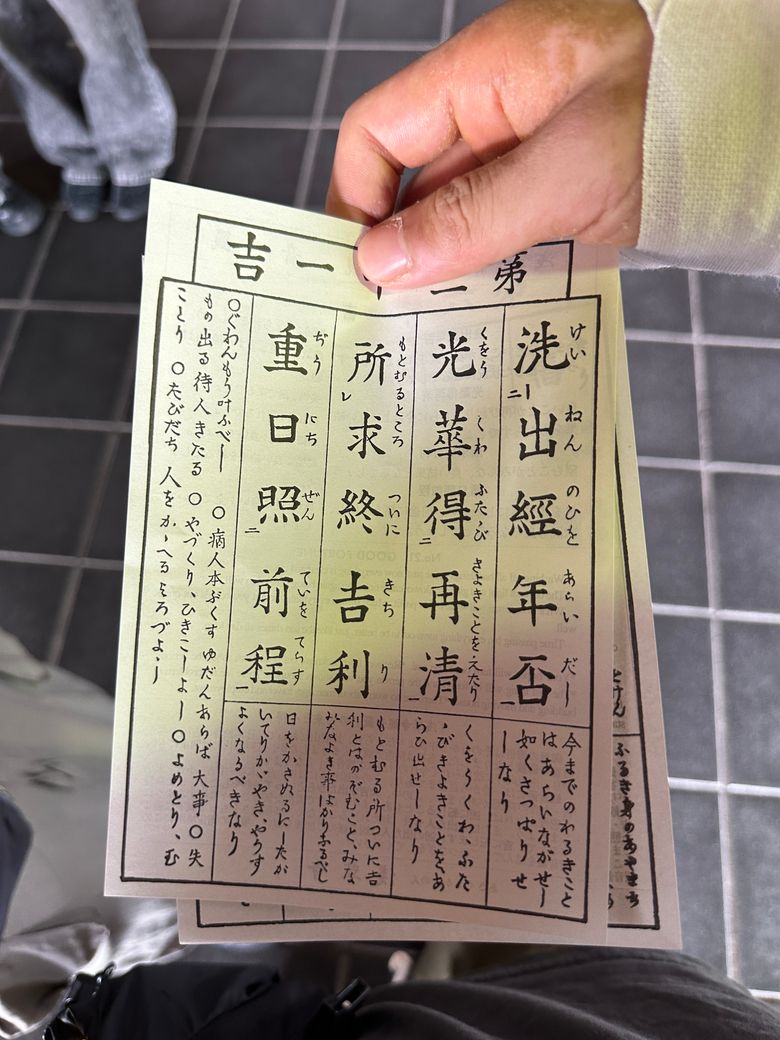 第二十一吉
けいねんのひをあらいだし
洗出經年否
くをうくわふたゝびきよきことをえたり
光華得再清
もとむるところついにきちり
所求終吉利
ぢうにちぜんていをてらす
重日照前程
今までのわるきこと
はあらいながせし
如くさつぱり せ
しなり
くをうくわ、ふた
ゝびきよきことをあ
らひ出せしなり
もとむる所ついに吉
利とはのぞむこと、みな
みなよき事ばかりあるべし
日をかさぬるにしたが
いてりかゞやき、やうす
よくなるべきなり
〇ぐわんもう叶ふべし 〇病人本ぷくす ゆだんあらば大事 〇失
もの出る 待人きたる 〇やづくり、ひきこしよし 〇よめとり、む
ことり 〇たびだち 人をかゝへる よろづよし
とけん
ふるき身のあやまち